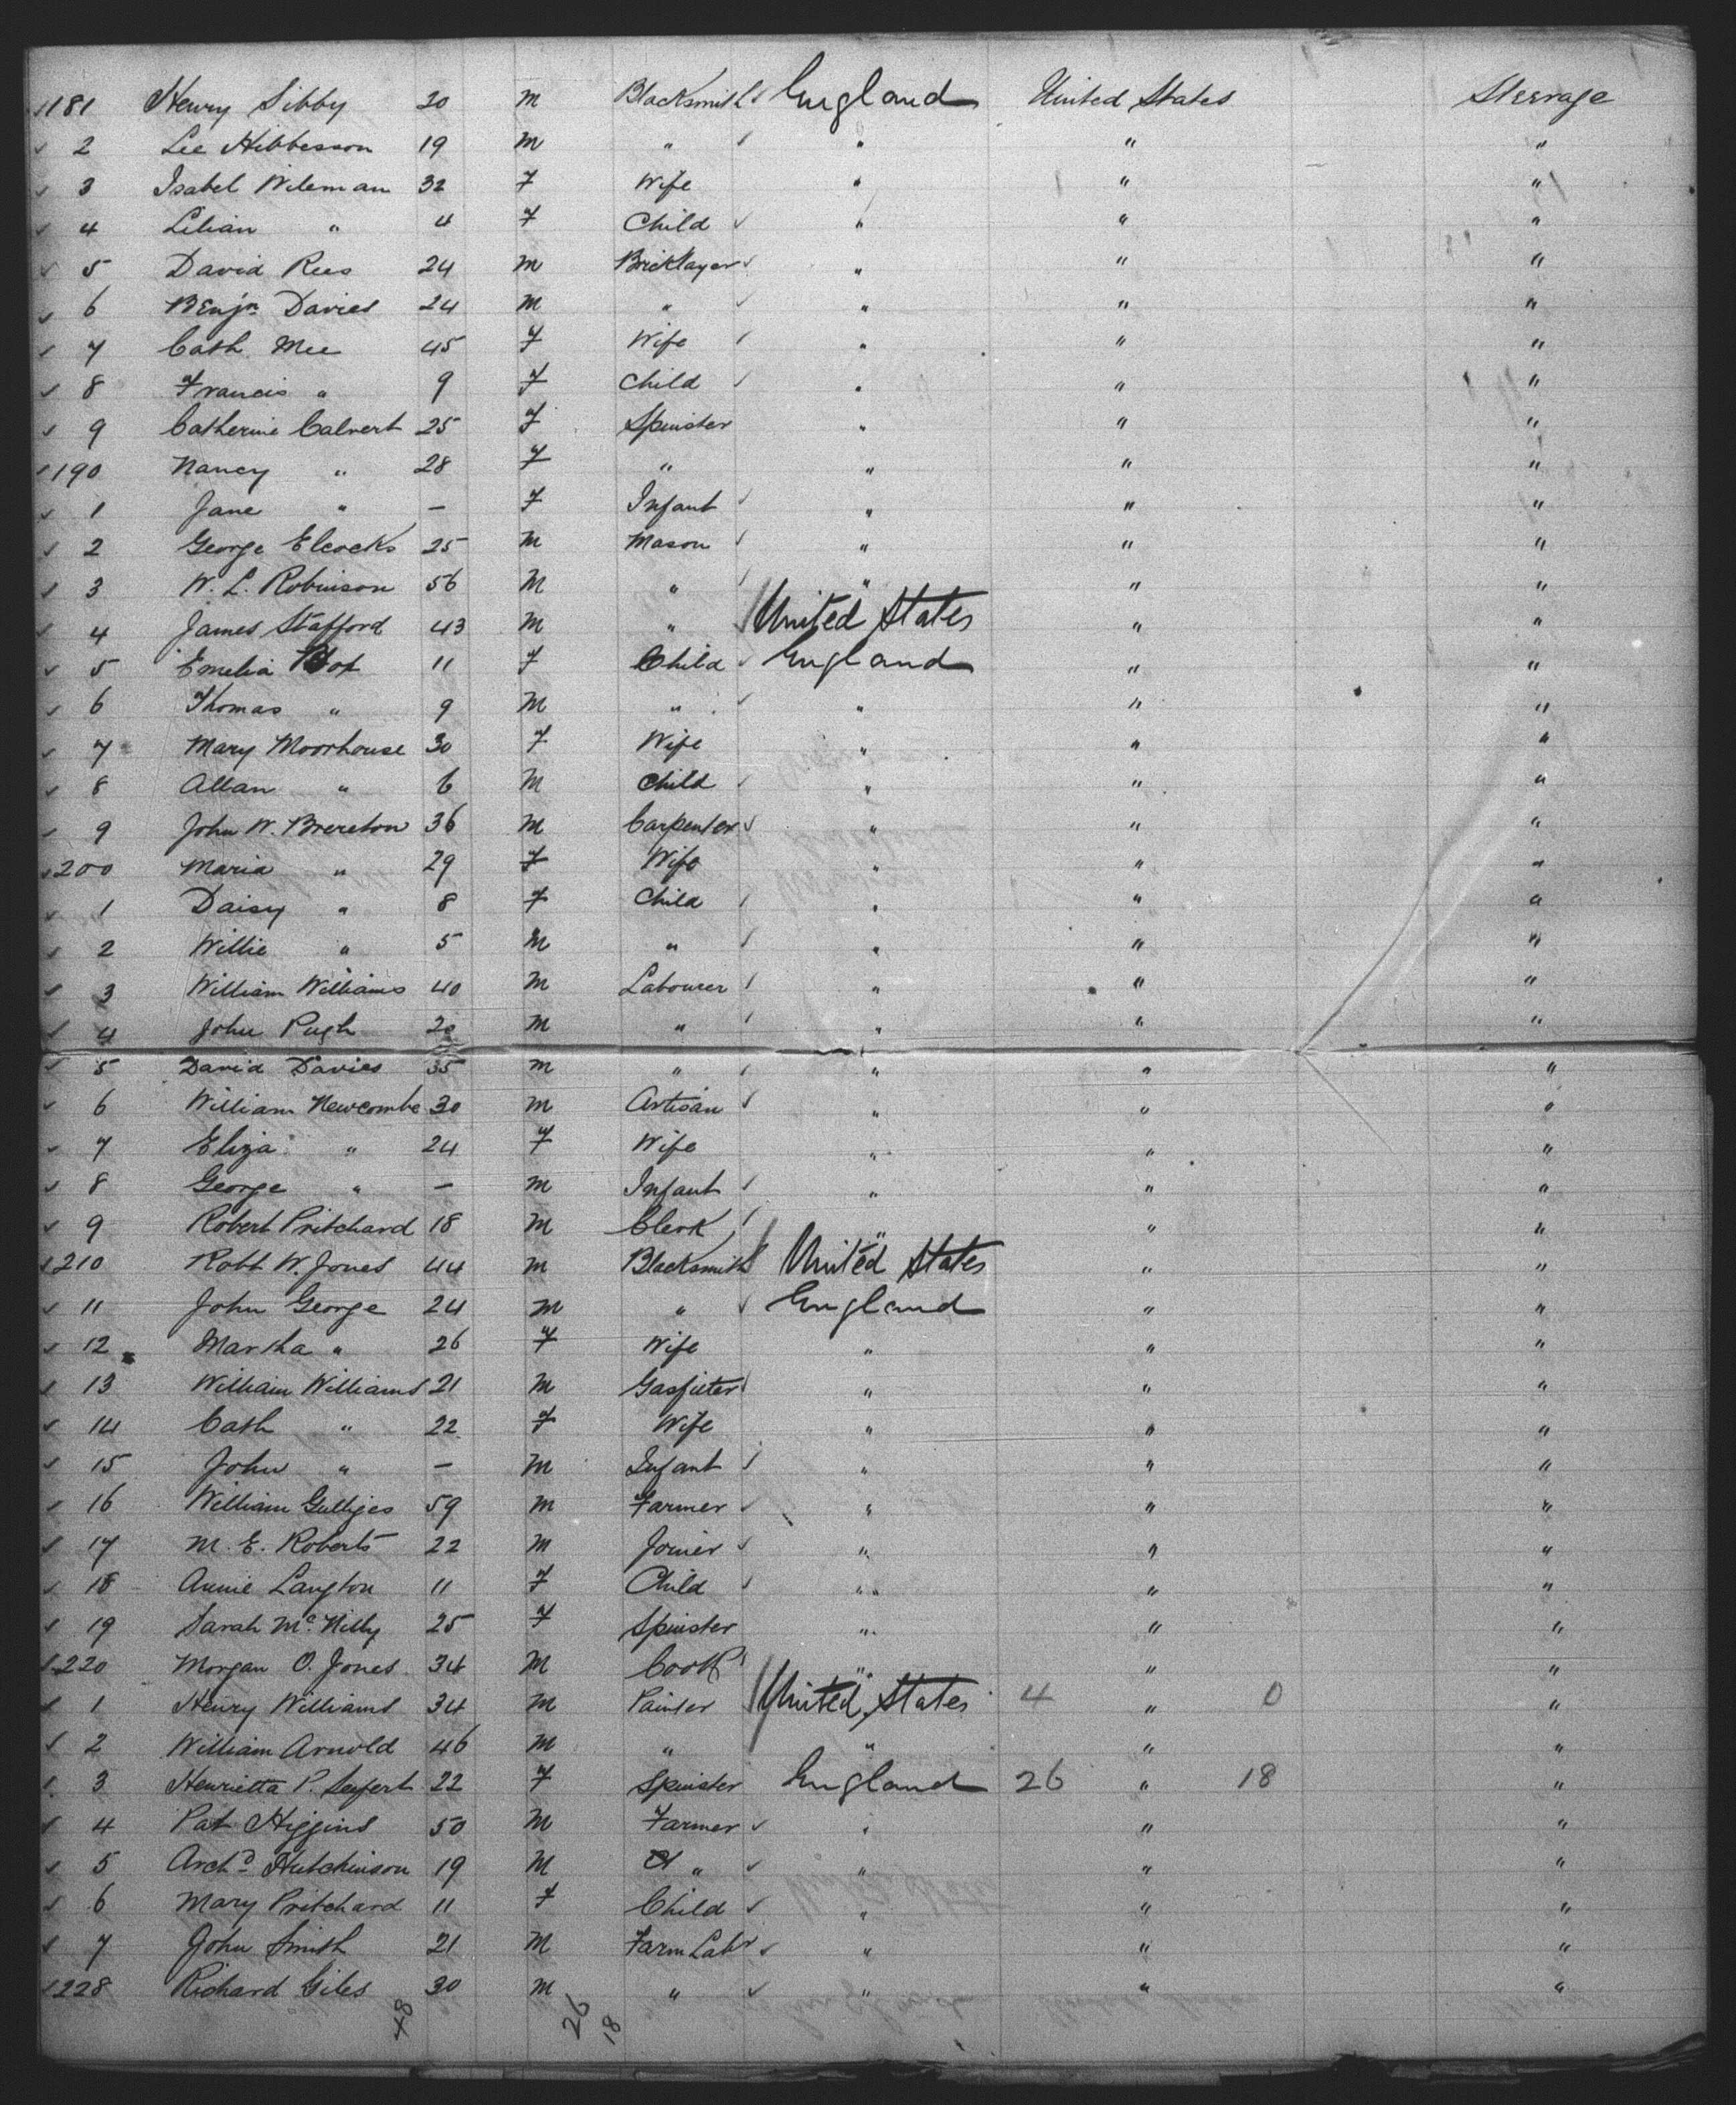 181 Henry Sibby 20 m Blacksmith England United States Steerage
2 Lee Hibbesson 19 m " " " "
3 Isabel Wileman 32 F Wife " " "
4 Lilian " 4 F Child " " "
5 David Rees 24 m Bricklayer " " "
6 Benjn Davies 24 m " " " "
7 Cath Mee 45 F Wife " " "
8 Francis " 9 F Child " " "
9 Catherine Calvert 25 F Spinster " " "
190 Nancy " 28 F " " " "
1 Jane " — F Infant " " "
2 George Elcocks 25 m Mason " " "
3 W. L. Robinson 56 m " " " "
4 James Stafford 43 m " United States " "
5 Emelia 11 F Child England " "
6 Thomas " 9 m " " " "
7 Mary Moorhouse 30 F Wife " " "
8 Allan " 6 m Child " " "
9 John W. Brereton 36 m Carpenter " " "
200 Maria " 29 F Wife " " "
1 Daisy " 8 F Child " " "
2 Willie " 5 m " " " "
3 William Williams 40 m Labourer " " "
4 John Pugh 20 m " " " "
5 David Davies 35 m " " " "
6 William Newcombe 30 m Artisan " " "
7 Eliza " 24 F Wife " " "
8 George " — m Infant " " "
9 Robert Pritchard 18 m Clerk " " "
210 Robt W. Jones 44 m Blacksmith United States " "
11 John George 24 m " England " "
12 Martha " 26 F Wife " " "
13 William Williams 21 m Gasfitter " " "
14 Cath " 22 F Wife " " "
15 John " — m Infant " " "
16 William 59 m Farmer " " "
17 M. E. Roberts 22 m Joiner " " "
18 Annie Langton 11 F Child " " "
19 Sarah Mc Nilly 25 F Spinster " " "
220 Morgan O. Jones 34 m Cook " " "
1 Henry Williams 34 m Painter United States 4 " 0 "
2 William Arnold 46 m " " " "
3 Henrietta P. Seyfert 22 F Spinster England 26 " 18 "
4 Pat Higgins 50 m Farmer " " "
5 Archd Hutchinson 19 m " " " "
6 Mary Pritchard 11 F Child " " "
7 John Smith 21 m Farm Labr " " "
228 Richard Giles 30 m " " " "
48 26 18